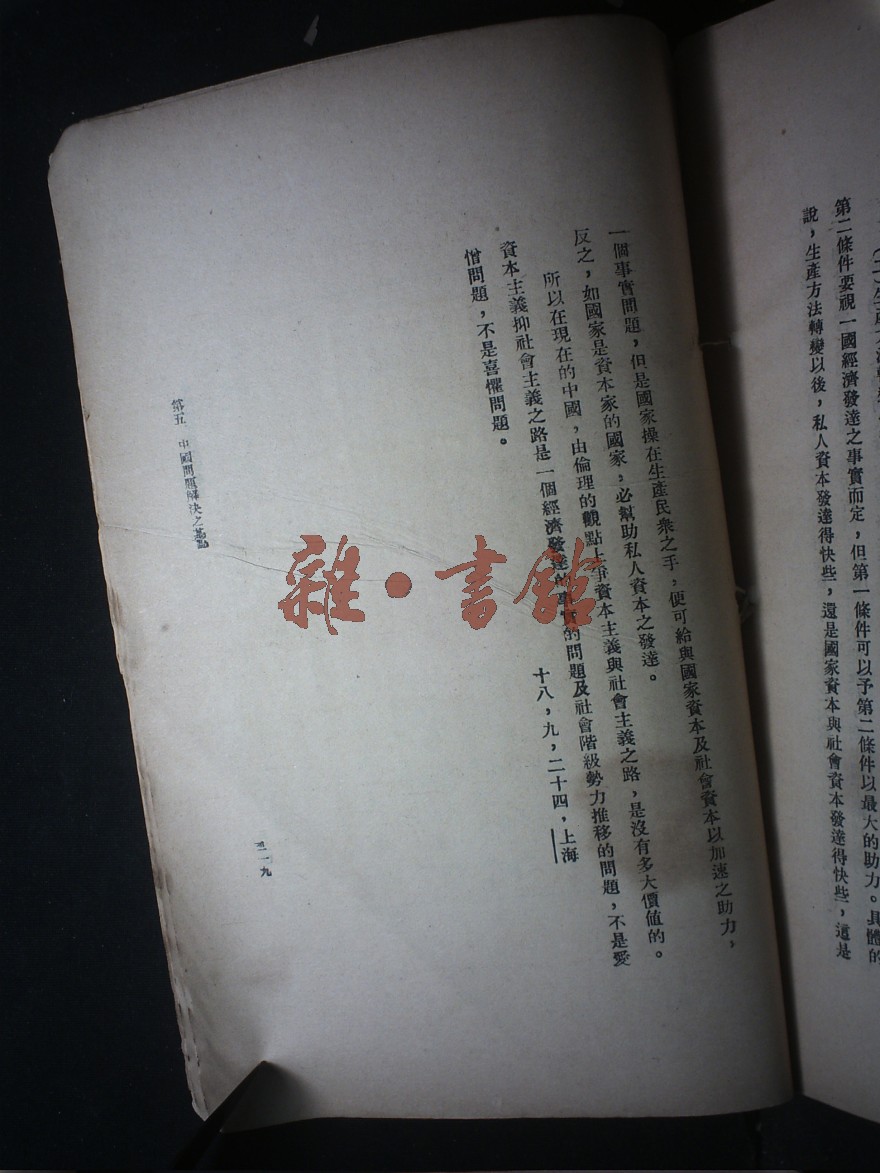 第二條件要視一國經濟發達之事實而定，但第一條件可以予第二條件以最大的助力。具體的
說，生產方法轉變以後，私人資本發達得快些，還是國家資本與社會資本發達得快些，這是
一個事實問題，但是國家操在生產民衆之手，便可給與國家資本及社會資本以加速之助力，
反之，如國家是資本家的國家，必幫助私人資本之發達。
所以在現在的中國，由倫理的觀點上爭資本主義與社會主義之路，是沒有多大價值的。
資本主義抑社會主義之路是一個經濟發達的事實的問題及社會階級勢力推移的問題，不是愛
憎問題，不是喜懼問題。
十八，九，二十四，上海
第五　中國問題解決之基點
二一九
雜·書館